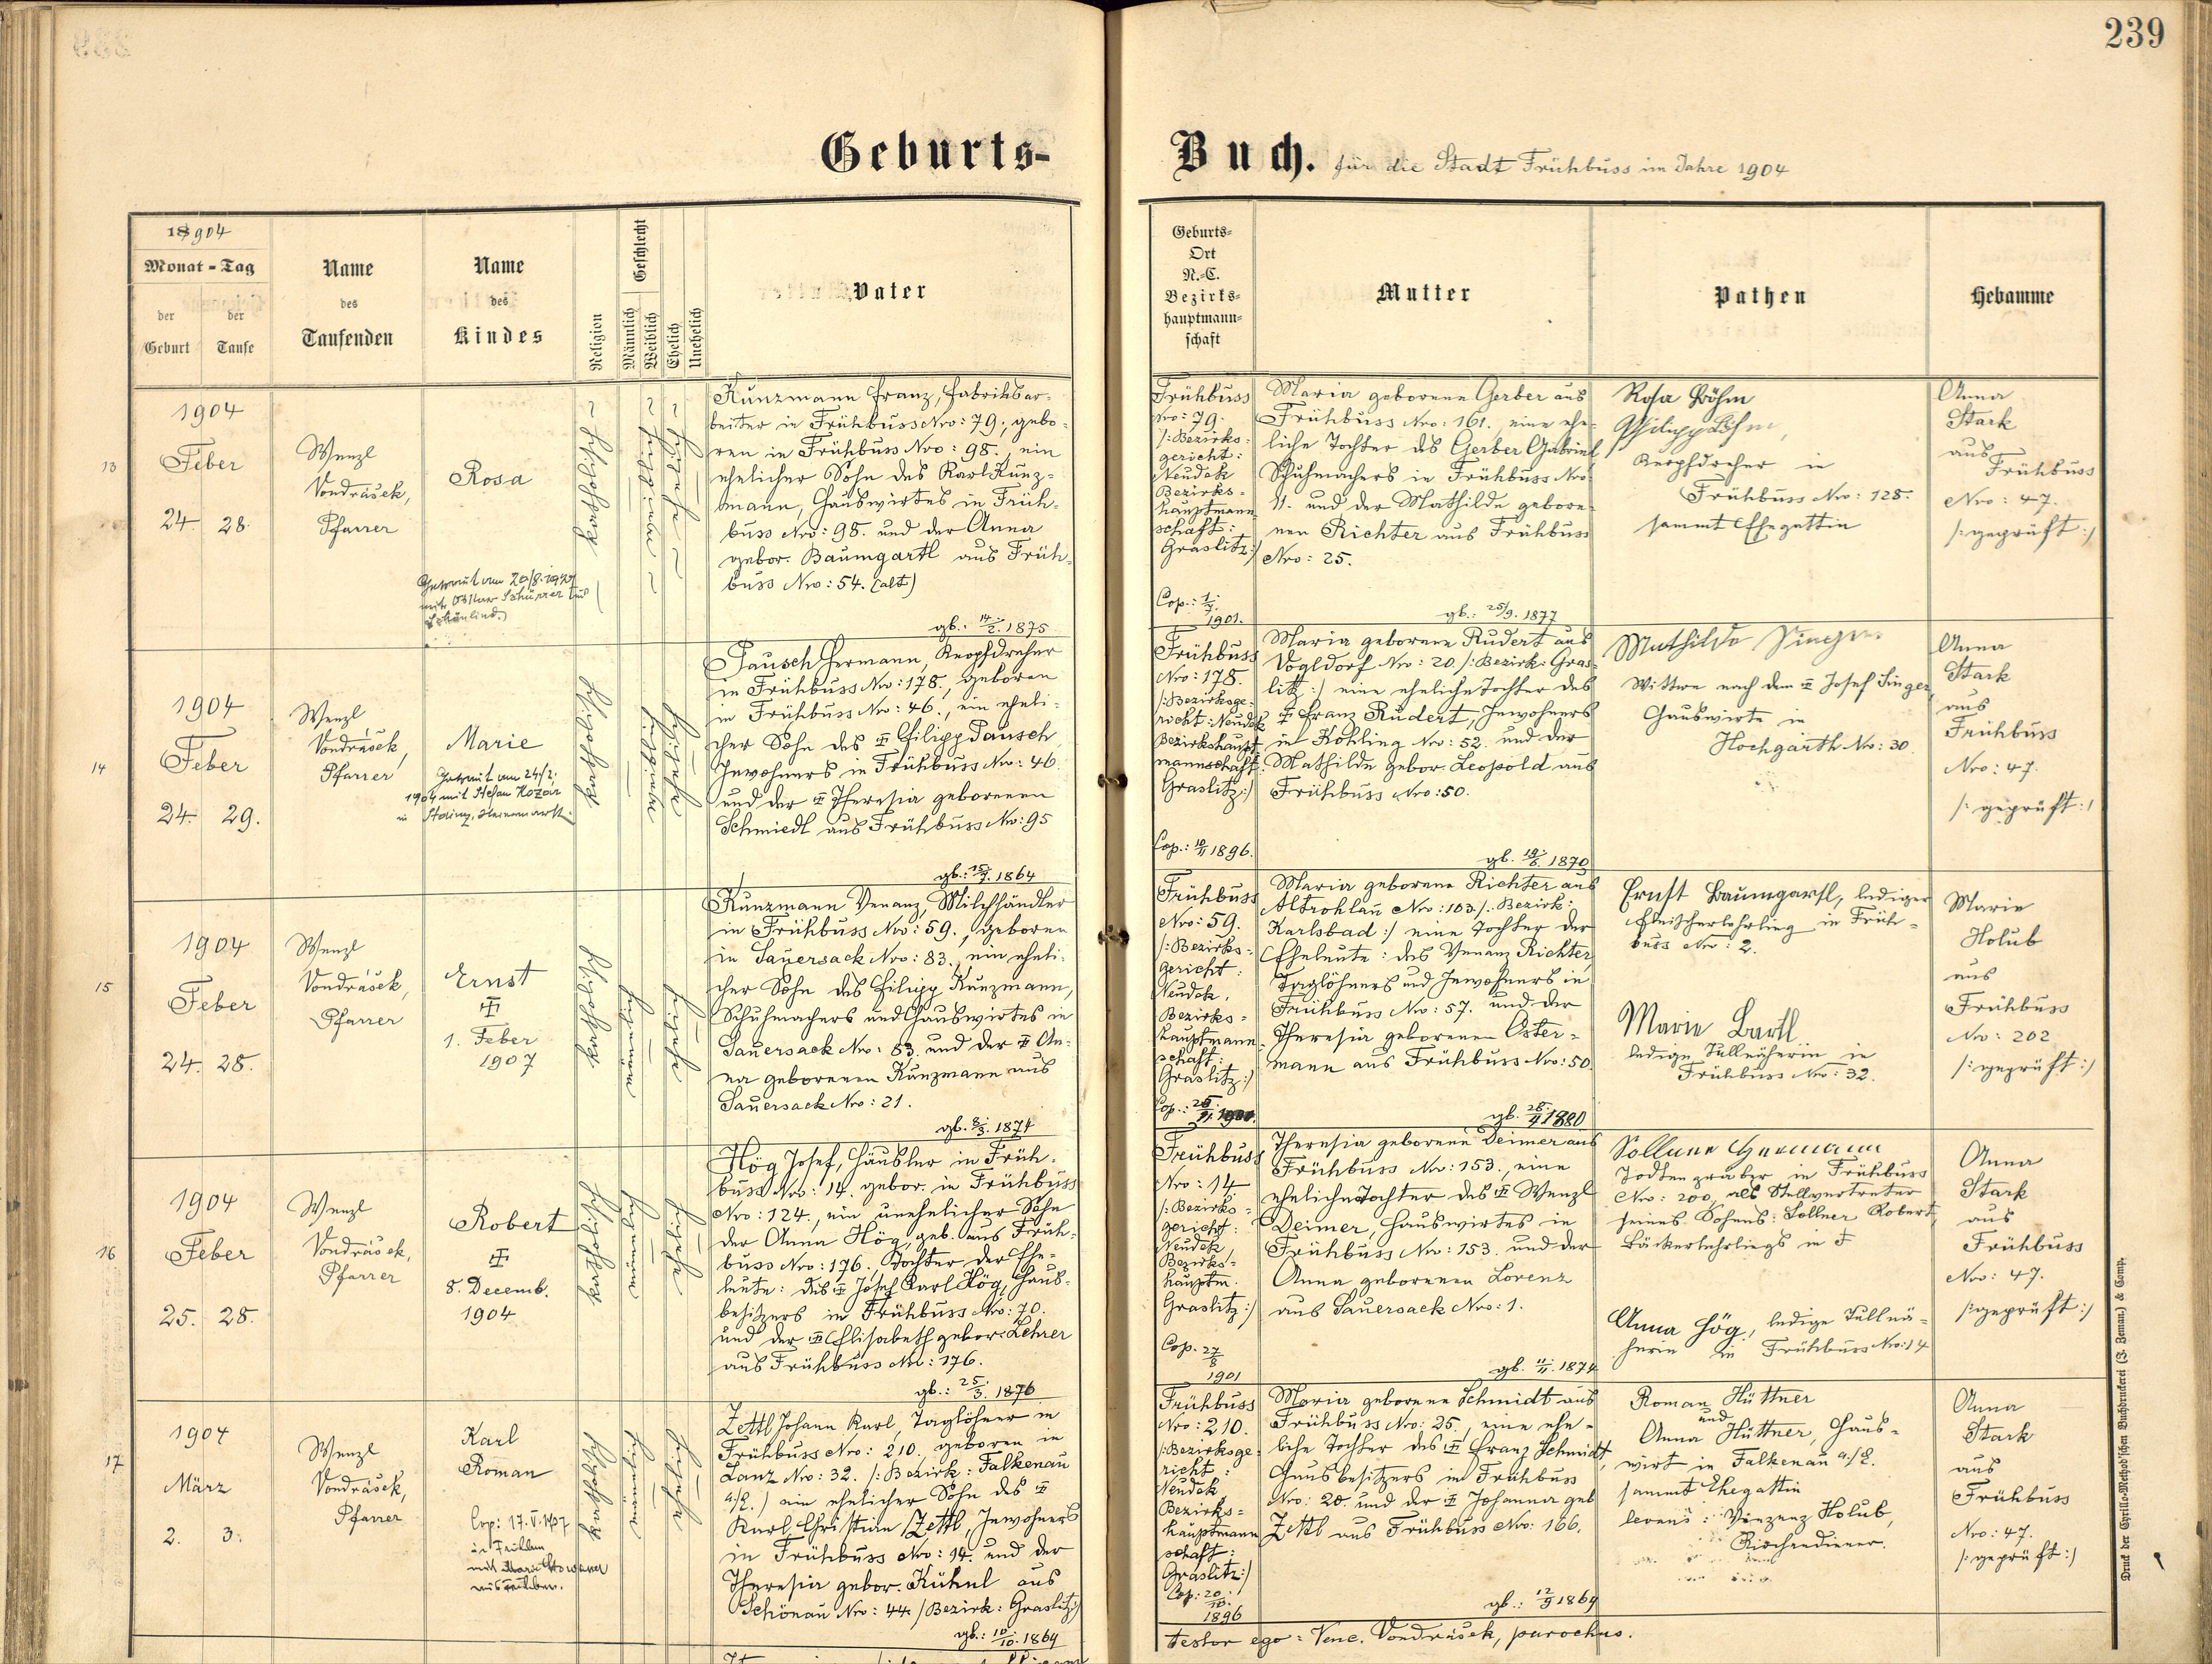 239
Geburts-
Buch. für die Stadt Frühbuss im Jahre 1904
18904
Monat - Tag
der Geburt
der Taufe
Name des Taufenden
Name des Kindes
Religion
Geschlecht
Männlich
Weiblich
Ehelich
Unehelich
Vater
Geburts-
Ort
N.-C.
Bezirks-
hauptmann-
schaft
Mutter
Pathen
Hebamme
13
1904
Feber
24. 28.
Wenzl
Vondrášek,
Pfarrer
Rosa
Kunzmann Franz, Fabriksar-
beiter in Frühbuss Nro: 79., gebo-
ren in Frühbuss Nro: 98. ein
ehelicher Sohn des Karl Kunz-
mann, Hauswirtes in Früh-
buss Nro: 98. und der Anna
gebor. Baumgartl aus Früh-
buss Nro: 54. (alt)
gb.: 14/2. 1875
Frühbuss
Nro: 79.
/: Bezirks-
gericht:
Neudek
Bezirks-
hauptmann-
schaft:
Graslitz:/
Cop.: 1/7.
1901.
Maria geborene Gerber aus
Frühbuss Nro: 161. eine ehe-
liche Tochter des Gerber Gabriel
Schuhmachers in Frühbuss Nro
11. und der Mathilde gebore-
nen Richter aus Frühbuss
Nro: 25.
gb.: 25/9. 1877
Rosa Böhm
Philipp Böhm,
Knopfdreher in
Frühbuss Nro: 128.
sammt Ehegattin
Anna
Stark
aus
Frühbuss
Nro: 47.
/: geprüft :/
14
1904
Feber
24. 29.
Wenzl
Vondrášek,
Pfarrer
Marie
Getraut am 24/2.
mit Stefan
in
Pausch Hermann, Knopfdreher
in Frühbuss Nro: 178., geboren
in Frühbuss Nro: 46., ein eheli-
cher Sohn des Filipp Pausch,
Inwohners in Frühbuss Nro: 46
und der Theresia geborenen
Schmiedl aus Frühbuss Nro: 95
gb.: 15/7. 1864
Frühbuss
Nro: 178.
/: Bezirksge-
richt: Neudek
Bezirkshaupt-
mannschaft:
Graslitz:/
Cop.: 10/11 1896.
Maria geborene Rudert aus
Vogldorf Nro: 20. /: Bezirk: Gras-
litz :/ eine eheliche Tochter des
Franz Rudert, Inwohners
in Kohling Nro: 52. und der
Mathilde gebor. Leopold aus
Frühbuss Nro: 50.
gb. 19/6. 1870
Mathilde Singer
Wittwe nach dem Josef Singer,
Hauswirts in
Hochgarth Nr: 30.
Anna
Stark
aus
Frühbuss
Nro: 47.
/: geprüft :/
15
1904
Feber
24. 28.
Wenzl
Vondrášek,
Pfarrer
Ernst
1. Feber
1907
Kunzmann Venanz, Milchhändler
in Frühbuss Nro: 59., geboren
in Sauersack Nro: 83., ein eheli-
cher Sohn des Filipp Kunzmann,
Schuhmachers und Hauswirtes in
Sauersack Nro: 83. und der An-
na geborenen Kunzmann aus
Sauersack Nro: 21.
gb. 8/3. 1874
Frühbuss
Nro: 59.
/: Bezirks-
gericht:
Neudek,
Bezirks-
hauptmann-
schaft:
Graslitz:/
Maria geborene Richter aus
Altrohlau Nro: 103 /: Bezirk:
Karlsbad :/ eine Tochter der
Eheleute: des Venanz Richter,
Taglöhners und Inwohners in
Frühbuss Nro: 57. und der
Theresia geborenen Oster-
mann aus Frühbuss Nro: 50.
1880
Ernst Baumgartl, lediger
Fleischerlehrling in Früh-
buss Nro: 2.
Marie Bartl
ledige Tullnäherin in
Frühbuss Nro: 32.
Marie
Holub
aus
Frühbuss
Nro: 202
/: geprüft :/
16
1904
Feber
25. 28.
Wenzl
Vondrášek,
Pfarrer
Robert
8. Decemb.
1904
Hög Josef, Häusler in Früh-
buss Nro: 14. gebor. in Frühbuss
Nro: 124., ein unehelicher Sohn
der Anna Hög, geb. aus Früh-
buss Nro: 176. Tochter der Ehe-
leute: des Josef Karl Hög, Haus-
besitzers in Frühbuss Nro: 70.
und der Elisabeth gebor. Lehrer
aus Frühbuss Nro: 176.
gb.: 25/3. 1876
Frühbuss
Nro: 14
/: Bezirks-
gericht:
Neudek,
Bezirks-
hauptm.
Graslitz:/
Cop. 27/8
1901
Theresia geborene Deimer aus
Frühbuss Nro: 153., eine
eheliche Tochter des Wenzl
Deimer, Hauswirtes in
Frühbuss Nro: 153. und der
Anna geborenen Lorenz
aus Sauersack Nro: 1.
gb. 11/11. 1874
Sollner Hermann
Todtengräber in Frühbuss
Nro: 200, als Stellvertreter
seines Sohnes: Sollner Robert,
Bäckerlehrlings in F
Anna Hög, ledige Tullnä-
herin in Frühbuss Nro: 14
Anna
Stark
aus
Frühbuss
Nro: 47.
/: geprüft :/
17
1904
März
2. 3.
Wenzl
Vondrášek,
Pfarrer
Karl
Roman
Zettl Johann Karl, Taglöhner in
Frühbuss Nro: 210., geboren in
Lanz Nro: 32. /: Bezirk: Falkenau
a/E. :/ ein ehelicher Sohn des
Karl Christian Zettl, Inwohners
in Frühbuss Nro: 94. und der
Theresia gebor. Kühnl aus
Schönau Nro: 44. /Bezirk: Graslitz:/
gb.: 10/10. 1864
Frühbuss
Nro: 210.
/: Bezirksge-
richt:
Neudek,
Bezirks-
hauptmann-
schaft:
Graslitz:/
Cop: 20/10.
1896
Maria geborene Schmidt aus
Frühbuss Nro: 25., eine ehe-
liche Tochter des Franz Schmidt,
Hausbesitzers in Frühbuss
Nro: 20. und der Johanna geb
Zettl aus Frühbuss Nro: 166.
gb.: 12/9 1869
Roman Hüttner
und
Anna Hüttner, Haus-
wirt in Falkenau a./E.
sammt Ehegattin
Vinzenz Holub,
Kirchendiener.
Anna
Stark
aus
Frühbuss
Nro: 47.
/: geprüft :/
testor ego: Venc. Vondrášek, parochus.
Druck der Cyrillo-Method'schen Buchdruckerei (J. Zeman.) & Comp.